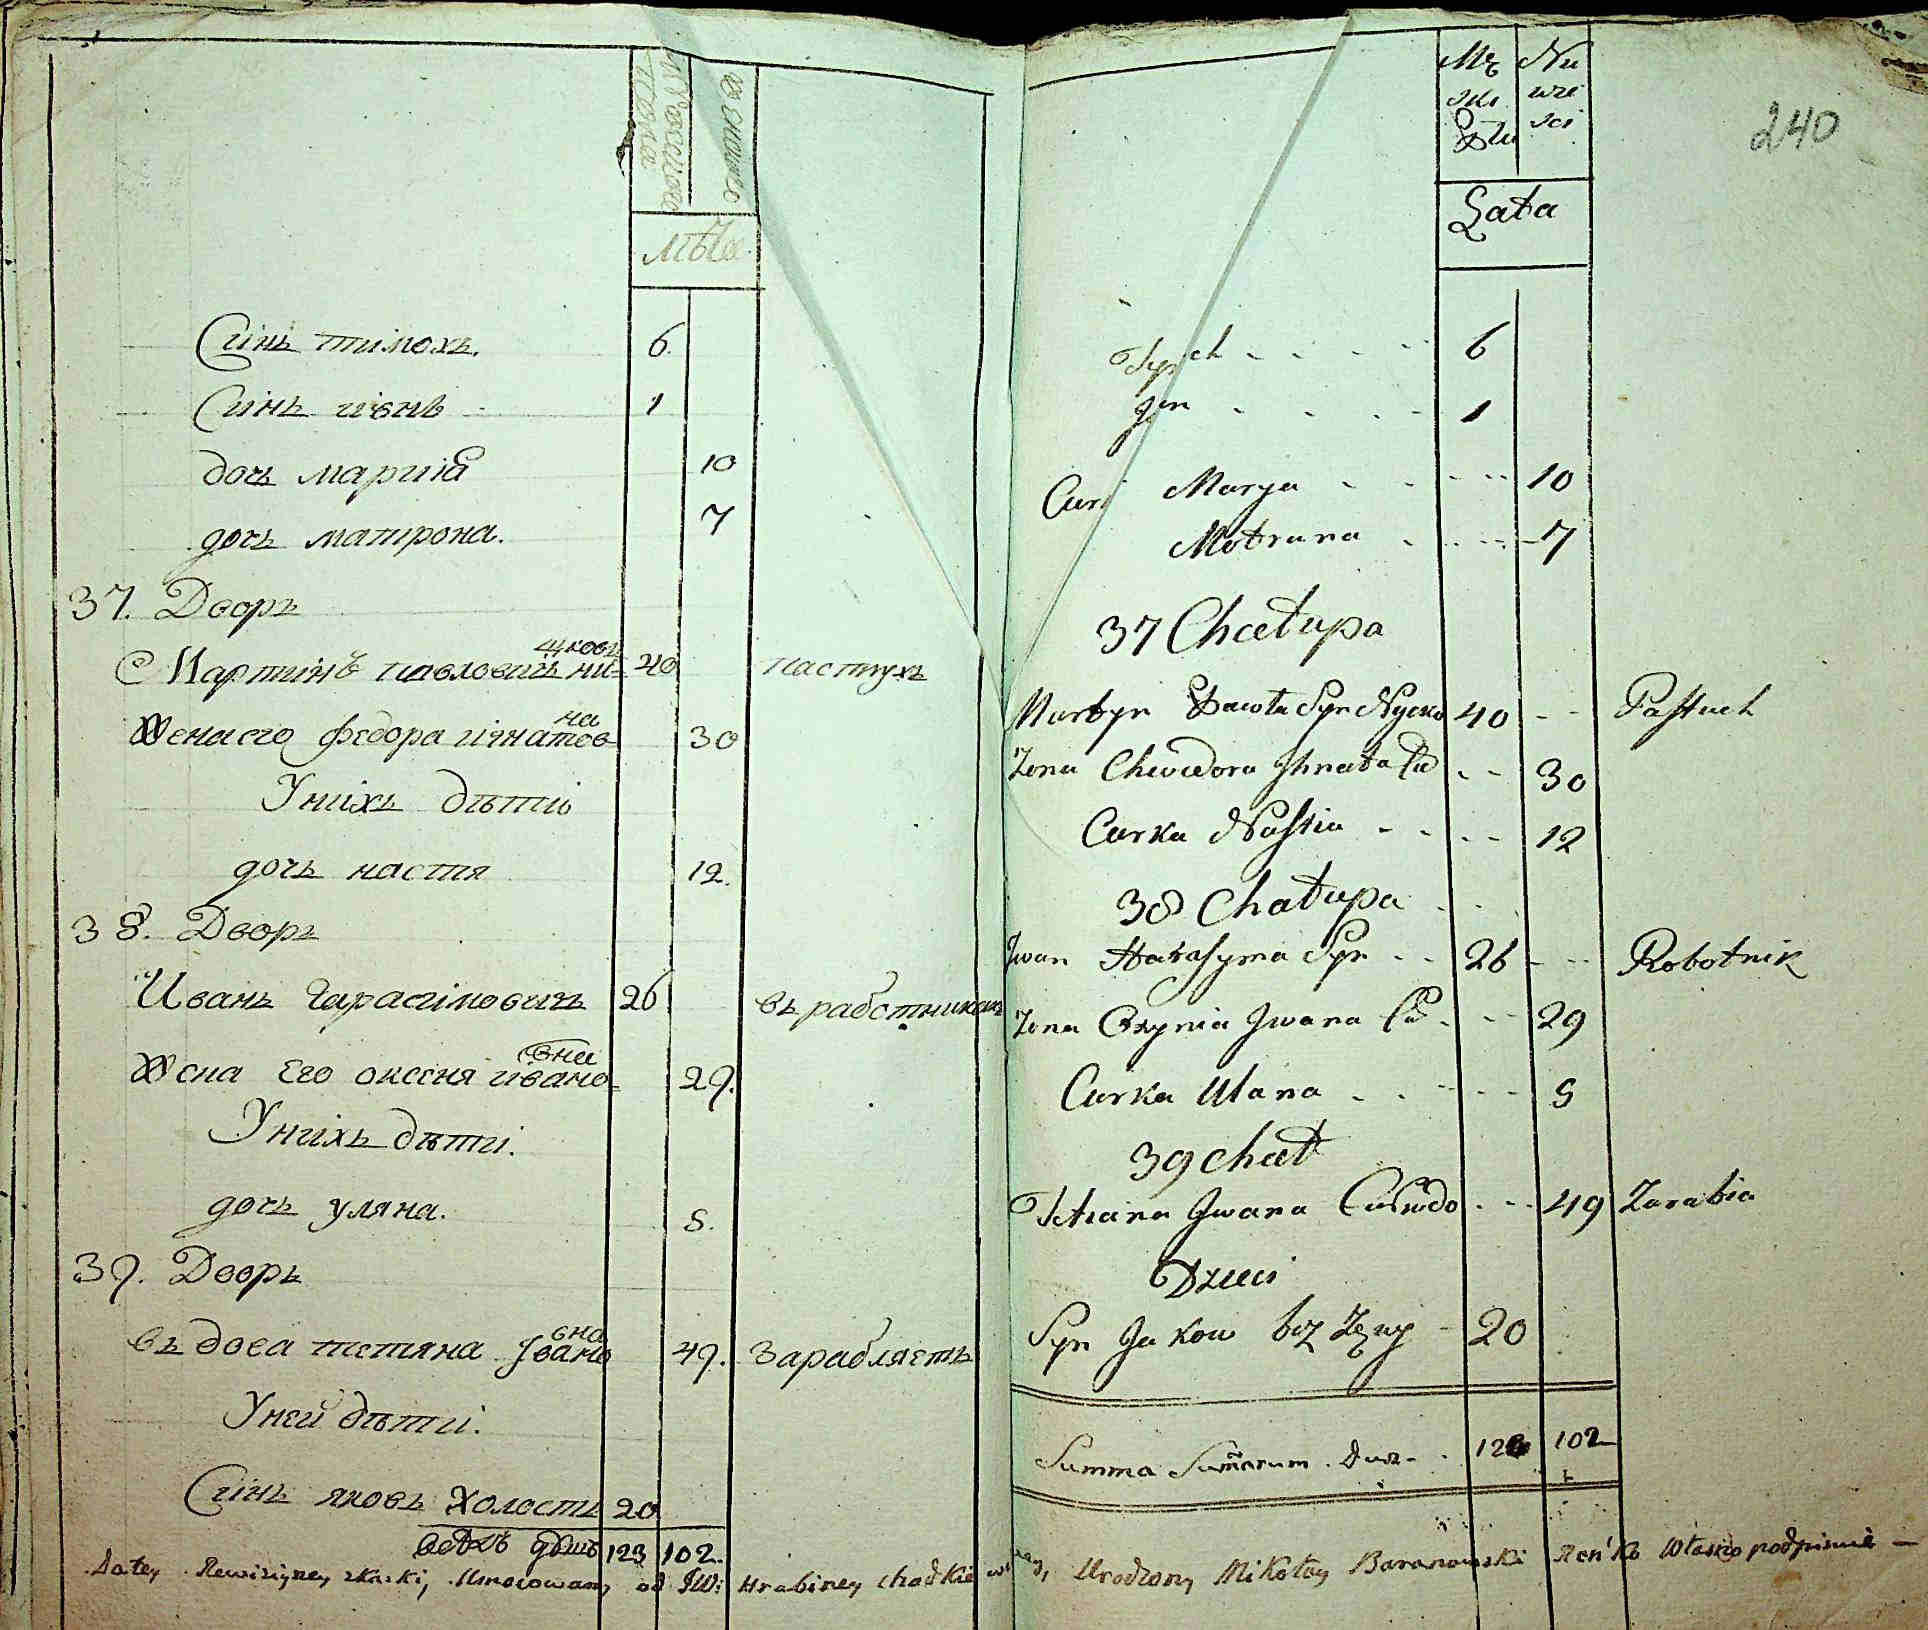 мужескаго пола
женска
Мѣta
Синъ тимохъ. 6.
Синъ иванъ 1
дочъ мариıа 10
дочъ матрона. 7
37. Дворъ
Мартинъ павловичъ ни-щиковъ 40 пастухъ
Жена его федора игнатов-на 30
У нихъ дѣти
дочъ настя 12.
38. Дворъ
Иванъ гарасимовичъ 26 въ работникахъ
Жена Его оксеня ивано-вна 29.
У нихъ дѣти.
дочъ уляна. 5.
39. Дворъ
въдова тетяна Ивановна 49. Зарабляетъ
У ней дѣти.
Синъ яковъ холостъ 20
всѣхъ душъ 123 102.
240
Męski Płci
Niewieści
Lata
Tym ch 6
Jan 1
Curk Marya 10
Motruna 7
37 Chałupa
Martyn Pawła Syn 40 Pastuch
Zona Chwedora Ihnata Cu 30
Curka Nastia 12
38 Chałupa
Jwan Harasyma Syn 26 Robotnik
Zona Oxynia Jwana Cu 29
Curka Ulana 5
39 Chat
Tetiana Jwana Cu Wdo 49 Zarabia
Dzieci
Syn Jakow bez Zeny 20
Summa Summarum Dusz 123 102
Datey Rewizyiney skaski, Umocowany od JW: Hrabiney Chodkiewiczowey, Urodzony Mikołay Baranowski Ręką Własną podpisuie